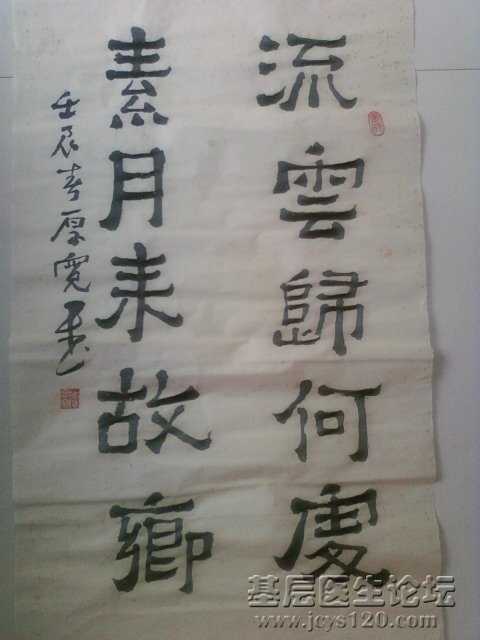 流雲歸何處
素月来故鄉
壬辰春厚寬
基层医生论坛
www.jcys120.com